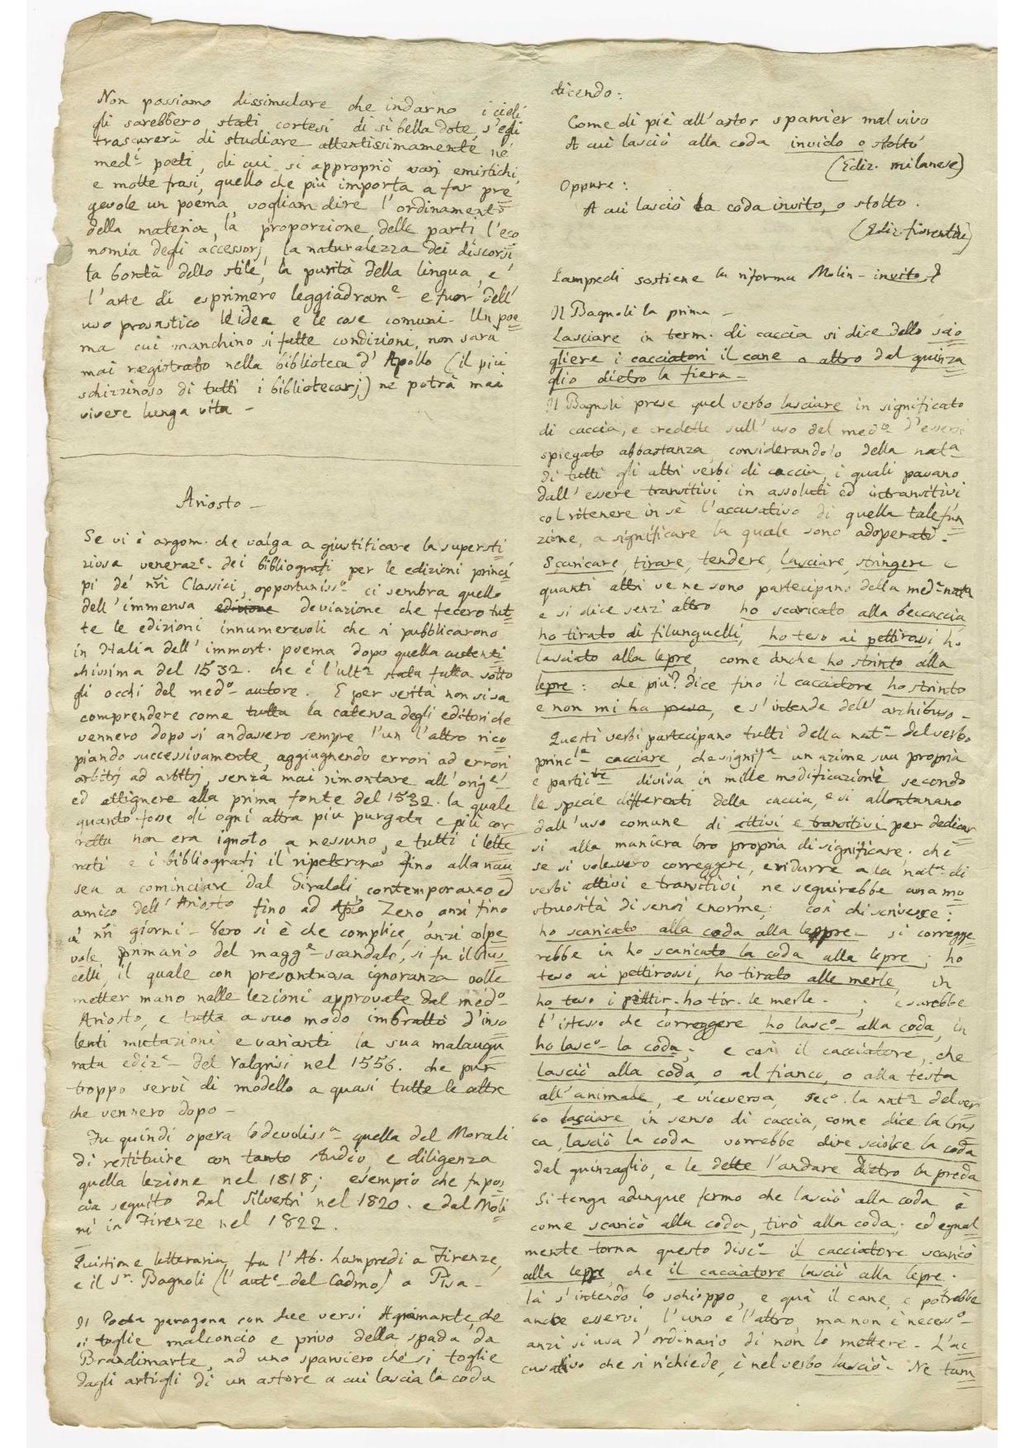 Non possiamo dissimulare che indarno i cieli
gli sarebbero stati cortesi di sì bella dote, s'egli
trascurerà di studiare attentissimamente ne'
med.i poeti, di cui si appropriò varj emistichi
e molte frasi, quello che più importa a far pre
gevole un poema, vogliam dire l'ordinamento
della materia, la proporzione delle parti l'eco
nomia degli accessorj, la naturalezza dei discorsi
la bontà dello stile, la purità della lingua, e
l'arte di esprimere leggiadram.e e fuor dell'
uso prosastico le idee e le cose comuni. Un poe
ma cui manchino sì fatte condizioni, non sarà
mai registrato nella biblioteca d'Apollo (il più
schizzinoso di tutti i bibliotecarj) né potrà mai
vivere lunga vita –
Ariosto –
Se vi è argom. che valga a giustificare la supersti
ziosa veneraz.e dei bibliografi per le edizioni princi
pi de' nri Classici, opportuniss.o ci sembra quello
dell'immensa edizione deviazione che fecero tut
te le edizioni innumerevoli che si pubblicarono
in Italia dell'immort. poema dopo quella autenti
chissima del 1532. che è l'ult.a stata fatta sotto
gli occhi del med.o autore. E per verità non si sa
comprendere come tutta la caterva degli editori che
vennero dopo si andassero sempre l'un l'altro rico
piando successivamente, aggiugnendo errori ad errori
arbitrj ad arbitrj, senza mai rimontare all'orig.e
ed attignere alla prima fonte del 1532. la quale
quanto fosse di ogni altra più purgata e più cor
retta non era ignoto a nessuno, e tutti i lette
rati e i bibliografi il ripeterono fino alla nau
sea a cominciare dal Giraldi contemporaneo ed
amico dell'Ariosto fino ad Apo Zeno, anzi fino
a' nri giorni – Vero si è che complice, anzi colpe
vole primario del magg.e scandalo, si fu il Rus
celli, il quale con presontuosa ignoranza volle
metter mano nelle lezioni approvate dal med.o
Ariosto, e tutta a suo modo imbrattò d'inso
lenti mutazioni e varianti la sua malaugu
rata ediz.e del Valgrisi nel 1556. che pur
troppo servì di modello a quasi tutte le altre
che vennero dopo –
Fu quindi opera lodevoliss.a quella del Morali
di restituire con tanto studio, e diligenza
quella lezione nel 1818; esempio che fu pos
cia seguito dal Silvestri nel 1820. e dal Moli
ni in Firenze nel 1822.
Quistione letteraria fra l'Ab. Lampredi a Firenze,
e il S.r Bagnoli (l'aut.e del Cadmo) a Pisa –
Il Poeta paragona con due versi Agramante, che
si toglie malconcio e privo della spada, da
Brandimarte, ad uno sparviero che si toglie
dagli artigli di un astore a cui lascia la coda
dicendo:
Come di piè all'astor sparvier mal vivo
A cui lasciò alla coda invido o stolto
(Ediz. milanese)
Oppure:
A cui lasciò la coda invito, o stolto.
(Ediz. fiorentini)
Lampredi sostiene la riforma Molin – invito,
Il Bagnoli la prima –
Lasciare in term. di caccia si dice dello scio
gliere i cacciatori il cane o altro dal guinza
glio dietro la fiera –
Il Bagnoli prese quel verbo lasciare in significato
di caccia, e credette sull'uso del med.o d'essersi
spiegato abbastanza, considerandolo della nat.a
di tutti gli altri verbi di caccia, i quali passano
dall'essere transitivi in assoluti ed intransitivi
col ritenere in sè l'accusativo di quella tale fun
zione, a significare la quale sono adoperati.
Scaricare, tirare, tendere, lasciare, stringere e
quanti altri ve ne sono partecipano della med.a nat.a
e si dice senz'altro ho scaricato alla beccaccia
ho tirato di filunguelli, ho teso ai pettirossi, ho
lasciato alla lepre, come anche ho strinto alla
lepre: che più? dice fino il cacciatore ho strinto
e non mi ha presa, e s'intende dell'archibuso –
Questi verbi partecipano tutti della nat.a del verbo
princ.le cacciare, che signif.a un azione sua propria
e partic.re divisa in mille modificazione secondo
le specie differenti della caccia, e si allontanano
dall'uso comune di attivi e transitivi per dedicar
si alla maniera loro propria di significare. che
se si volessero correggere, e ridurre a la nat.a di
verbi attivi e transitivi, ne seguirebbe una mo
struosità di sensi enorme, così chi scrivesse:
ho scaricato alla coda alla lepre – si corregge
rebbe in ho scaricato la coda alla lepre; ho
teso ai pettirossi, ho tirato alle merle, in
ho teso i pettir. ho tir. le merle. – ; e sarebbe
l'istesso che correggere ho lasc.o alla coda, in
ho lasc.o la coda; e così il cacciatore, che
lasciò alla coda, o al fianco, o alla testa
all'animale, e viceversa, sec.o la nat.a del ver
bo lasciare in senso di caccia, come dice la Crus
ca, lasciò la coda vorrebbe dire sciolse la coda
dal guinzaglio, e le dette l'andare dietro la preda
Si tenga adunque fermo che lasciò alla coda è
come scaricò alla coda, tirò alla coda; ed egual
mente torna questo disc.o il cacciatore scaricò
alla lepre, che il cacciatore lasciò alla lepre.
là s'intende lo schioppo, e quà il cane, e potrebbe
anche esservi l'uno e l'altro, ma non è necess.o
anzi si usa d'ordinario di non lo mettere – L'ac
cusativo che si richiede, è nel verbo lasciò. Ne tam